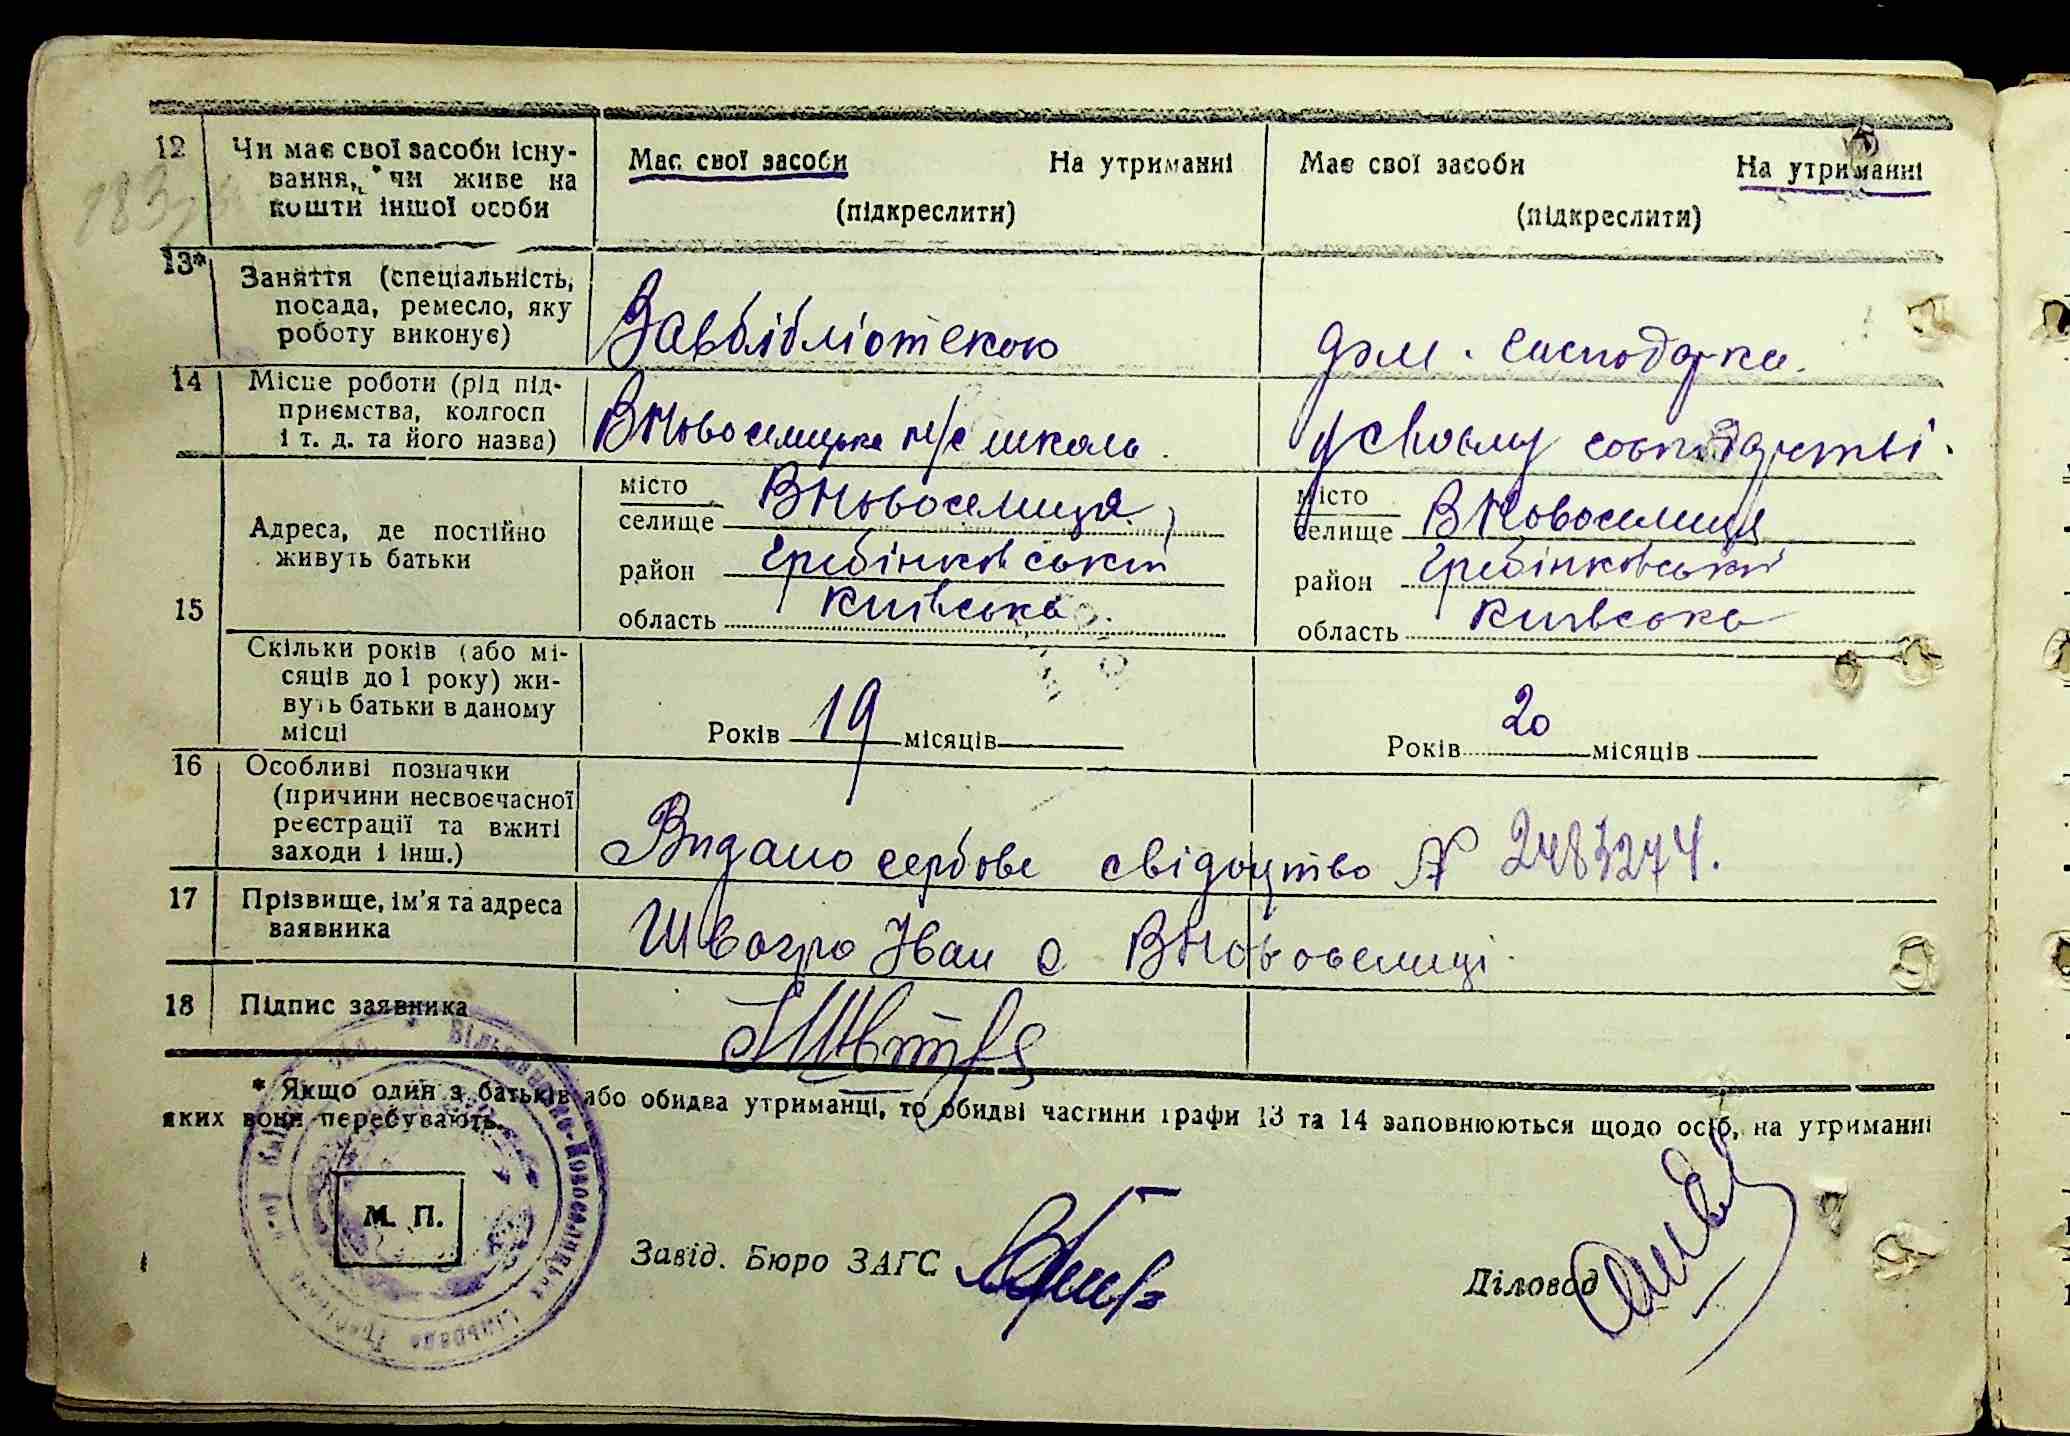 12 Чи має свої засоби існу-
вання, чи живе на
кошти іншої особи
Має свої засоби На утриманні
(підкреслити)
Має свої засоби На утриманні
(підкреслити)
13* Заняття (спеціальність,
посада, ремесло, яку
роботу виконує)
Завбібліотекою
дом. господарка.
14 Місце роботи (рід під-
приємства, колгосп
і т. д. та його назва)
ВНовоселицька н/с школа.
у своєму господарстві.
15 Адреса, де постійно
живуть батьки
місто
селище ВНовоселиця,
район Гребінковський
область Київська
місто
селище ВНовоселиця
район Гребінковський
область Київська
Скільки років (або мі-
сяців до 1 року) жи-
вуть батьки в даному
місці
Років 19 місяців
Років 20 місяців
16 Особливі позначки
(причини несвоєчасної
реєстрації та вжиті
заходи і інш.)
Видано гербове свідоцтво № 2483274.
17 Прізвище, ім'я та адреса
заявника
Швагро Іван с ВНовоселиці
18 Підпис заявника
* Якщо один з батьків або обидва утриманці, то обидві частини графи 13 та 14 заповнюються щодо осіб, на утриманні
яких вони перебувають.
М. П.
Завід. Бюро ЗАГС
Діловод